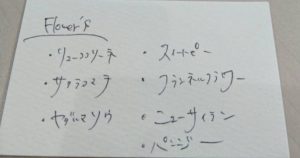 Flower's
・リューココリーネ
・サクラコマチ
・ヤグルマソウ
・スイートピー
・フランネルフラワー
・ニューサイラン
・パンジー